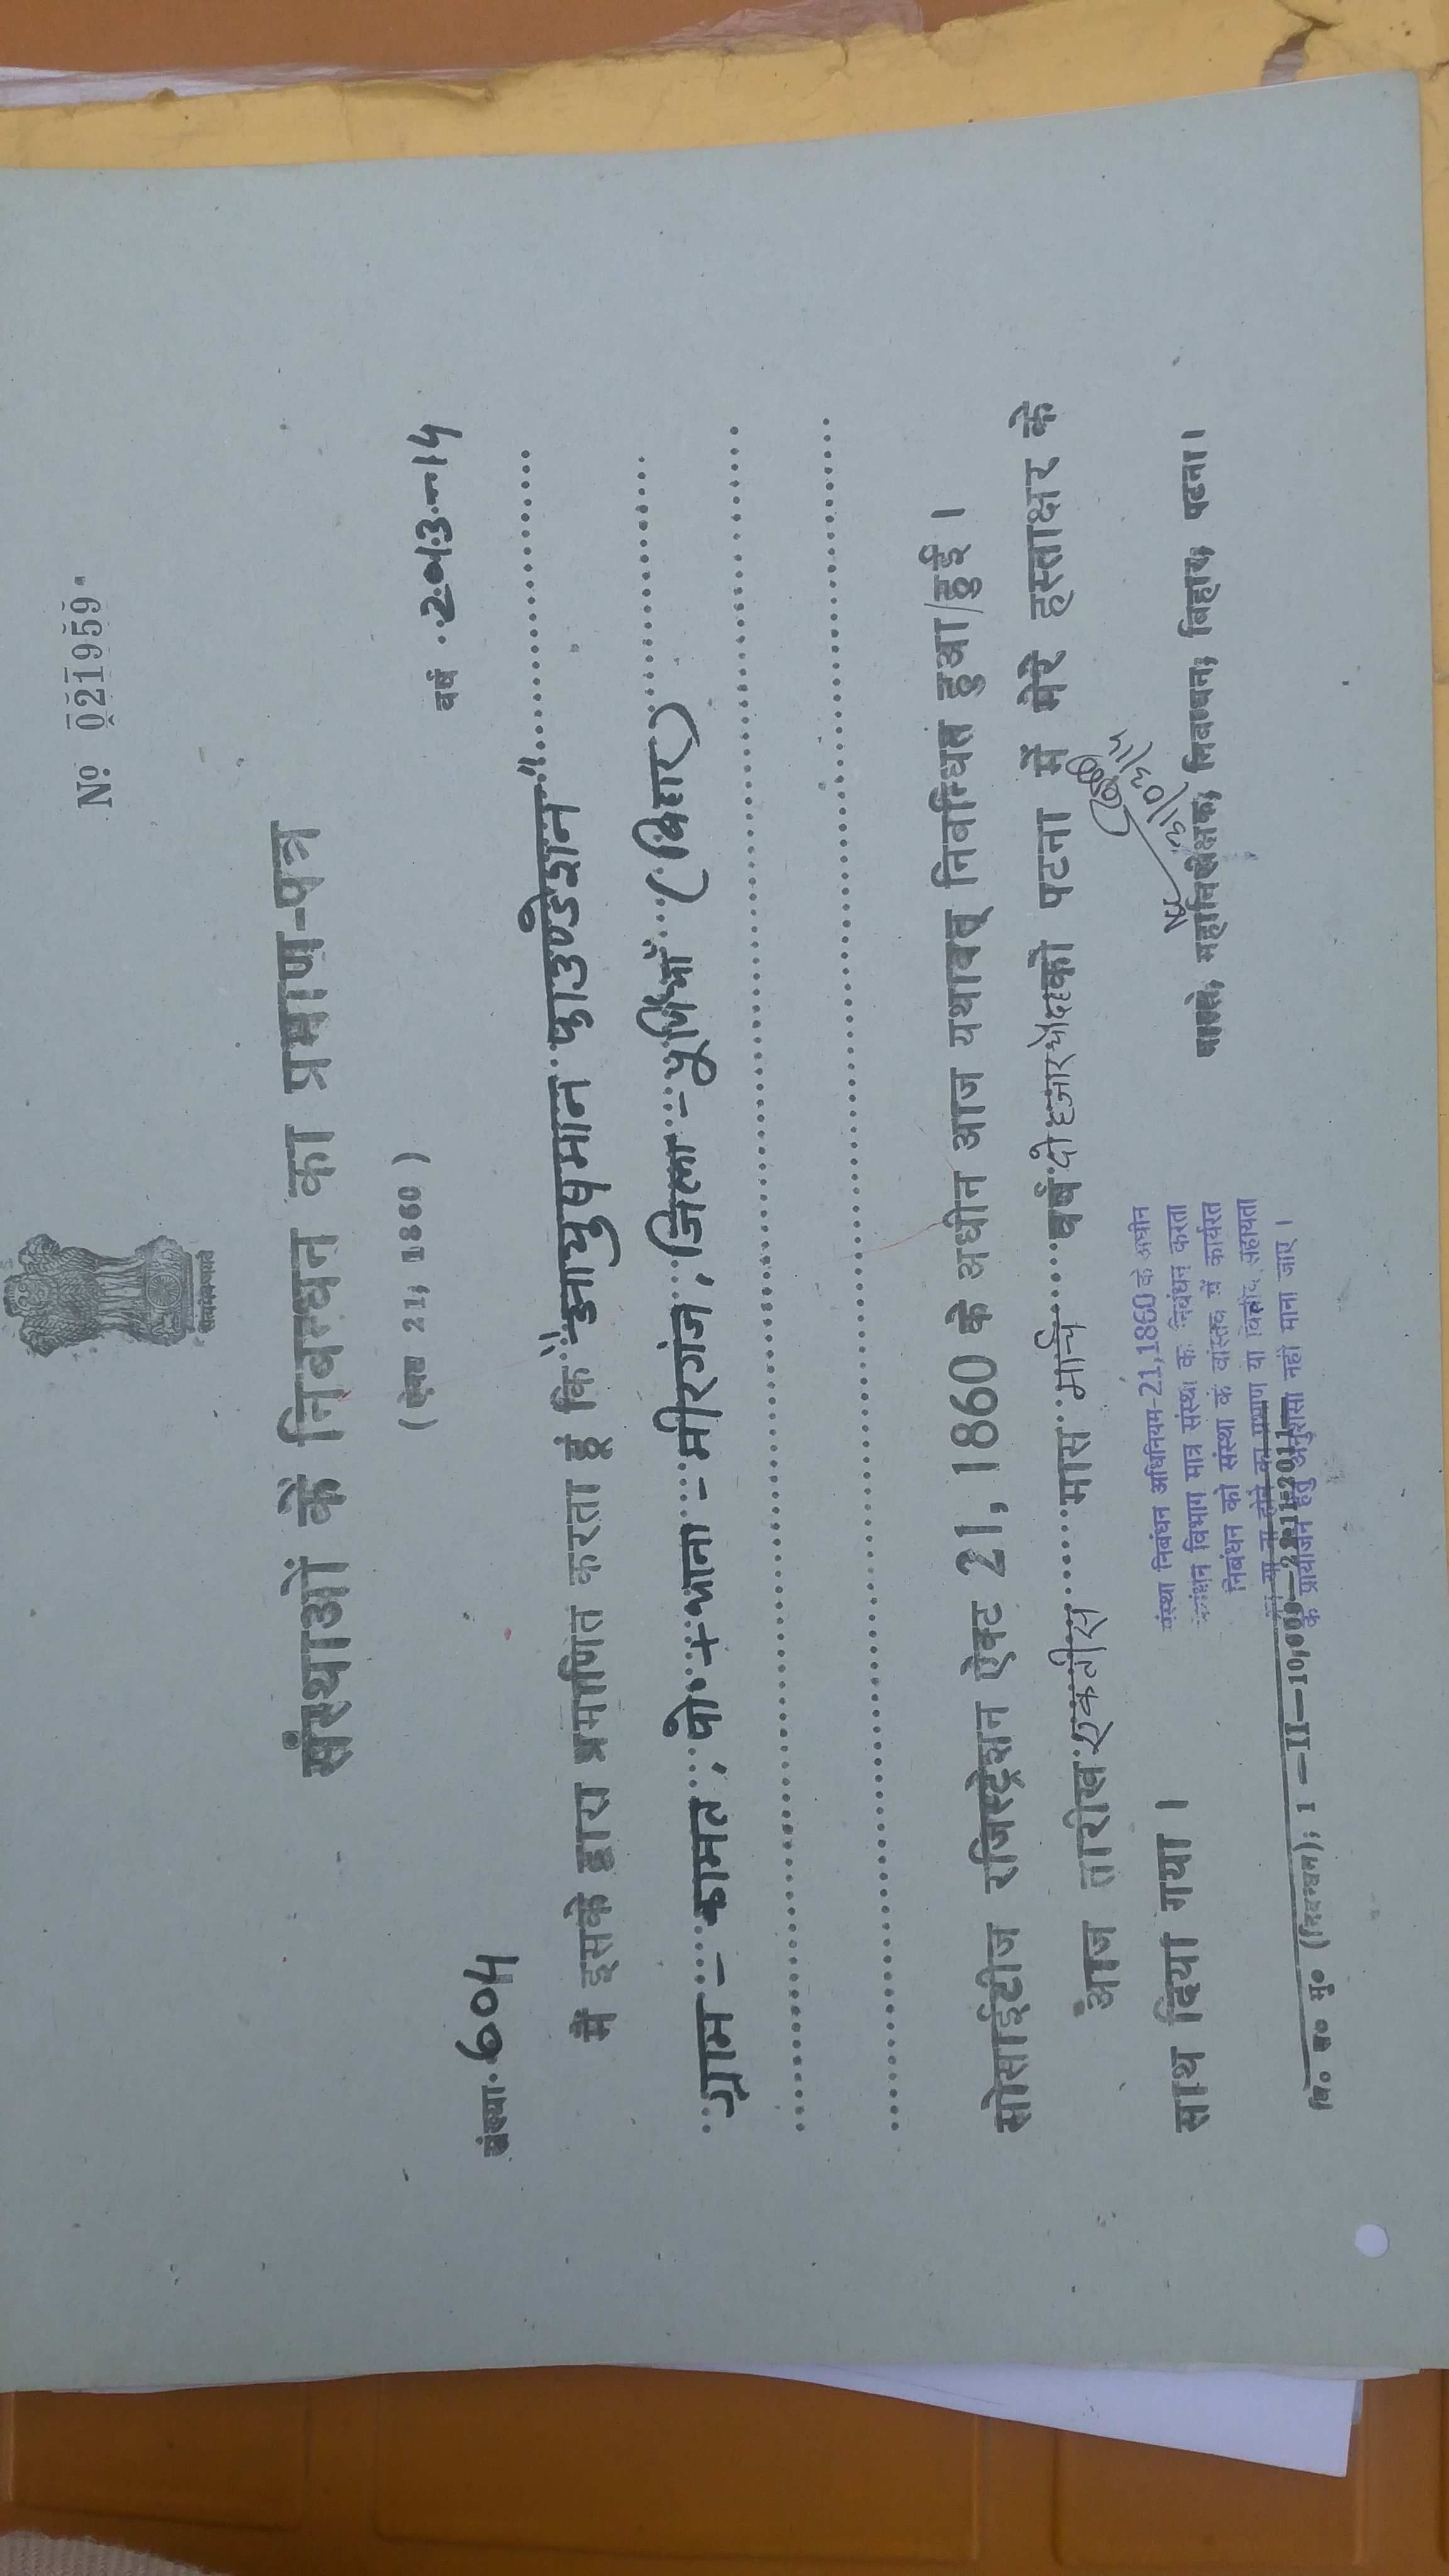 № 021959
संस्थाओं के निबन्धन का प्रमाण-पत्र
(ऐक्ट 21, 1860)
संख्या 604 वर्ष 2013-14
मैं इसके द्वारा प्रमाणित करता हूँ कि
फाउण्डेशन"
ग्राम - , पो० + थाना - मीरगंज, जिला - पूर्णियाँ (बिहार)
सोसाईटीज रजिस्ट्रेशन ऐक्ट 21, 1860 के अधीन आज यथावत् निबन्धित हुआ/हुई।
आज तारीख एकतीस मास मार्च वर्ष दो हजार चौदह को पटना में मेरे हस्ताक्षर के
साथ दिया गया।
31/03/14
वास्ते, महानिरीक्षक, निबन्धन, बिहार, पटना।
संस्था निबंधन अधिनियम-21,1860 के अधीन
विभाग मात्र संस्था का निबंधन करता
निबंधन को संस्था के वास्तव में कार्यरत
या न होने का प्रमाण या वित्तीय सहायता
के प्रयोजन हेतु अनुशंसा नहीं माना जाए।
बि० स० मु० (निबन्धन), 1—II—10,000—